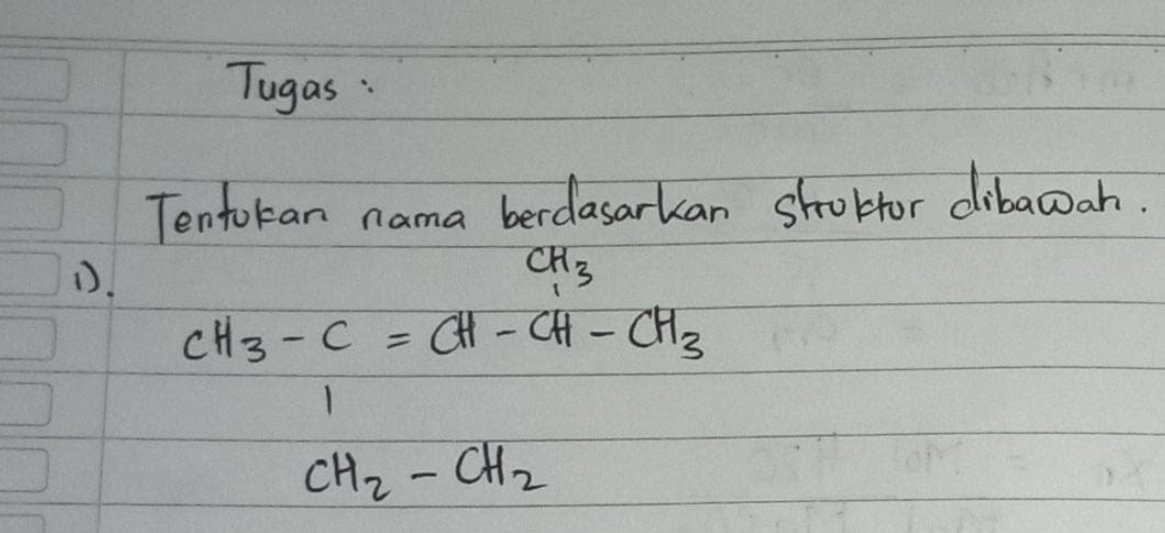 Tugas :
Tentukan nama berdasarkan struktur dibawah.
1).
CH3
|
CH3 - C = CH - CH - CH3
|
CH2 - CH2